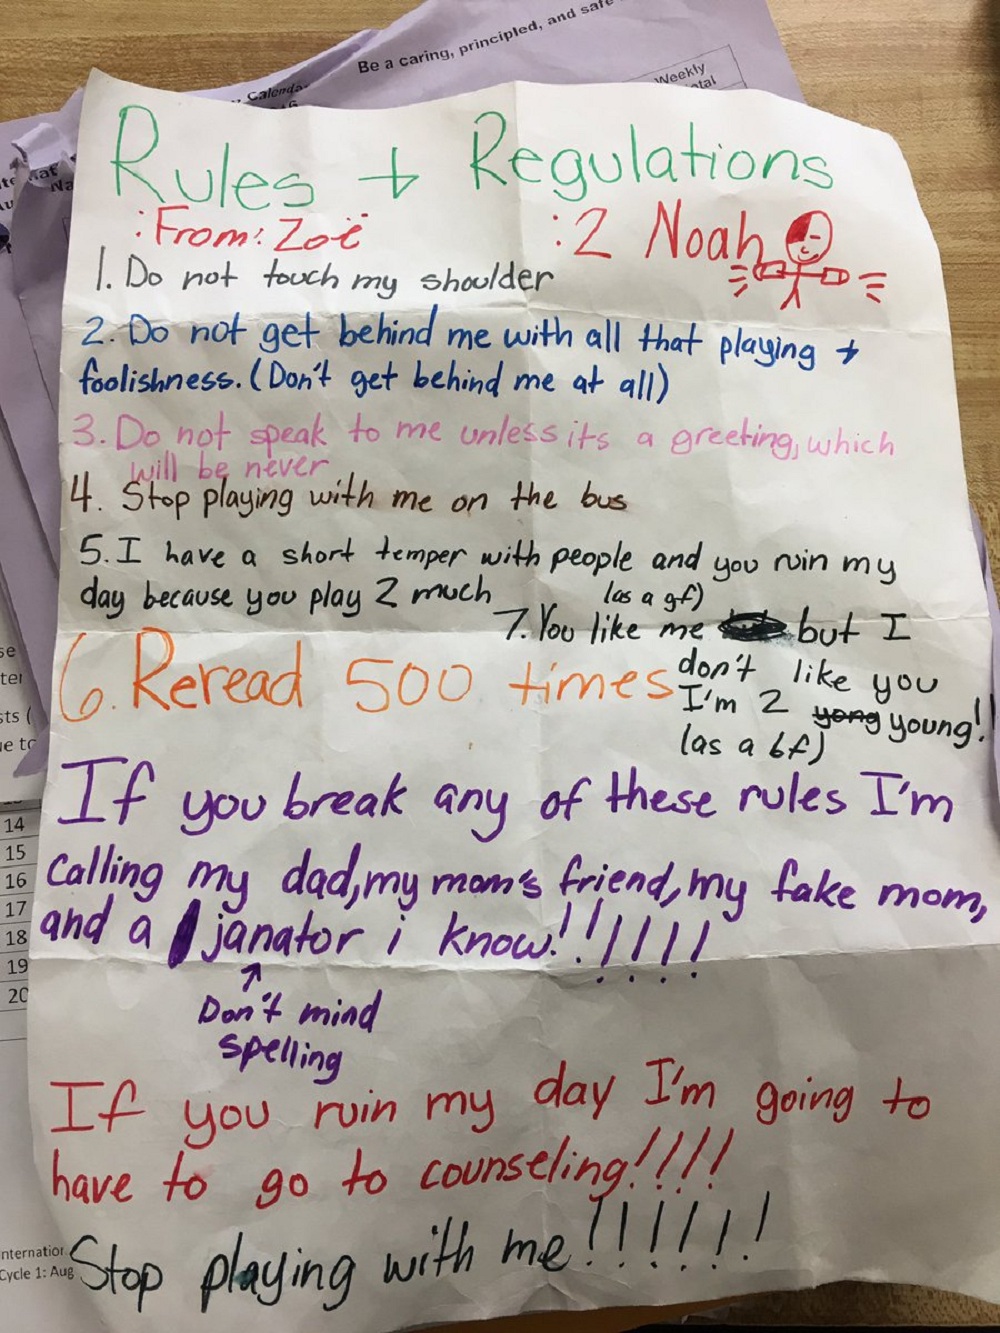 Be a caring, principled, and safe
Calenda
Weekly
otal
Rules + Regulations
:From: Zoë :2 Noah
1. Do not touch my shoulder
2. Do not get behind me with all that playing +
foolishness. (Don't get behind me at all)
3. Do not speak to me unless its a greeting, which
will be never
4. Stop playing with me on the bus
5. I have a short temper with people and you ruin my
day because you play 2 much
(as a gf)
7. You like me but I
don't like you
I'm 2 yong young!!
(as a bf)
6. Reread 500 times
If you break any of these rules I'm
calling my dad, my mom's friend, my fake mom,
and a janator i know!!!!!!!
Don't mind
spelling
If you ruin my day I'm going to
have to go to counseling!!!!
Stop playing with me!!!!!!
14
15
16
17
18
19
20
nternation
Cycle 1: Aug